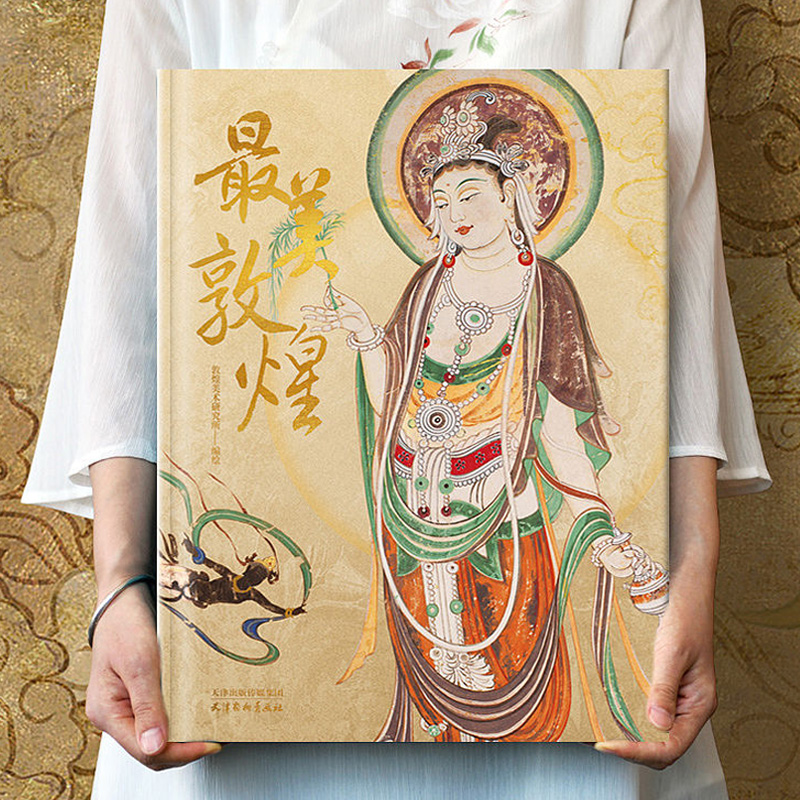 最美
敦煌
敦煌美术研究所——编绘
天津出版传媒集团
天津杨柳青画社